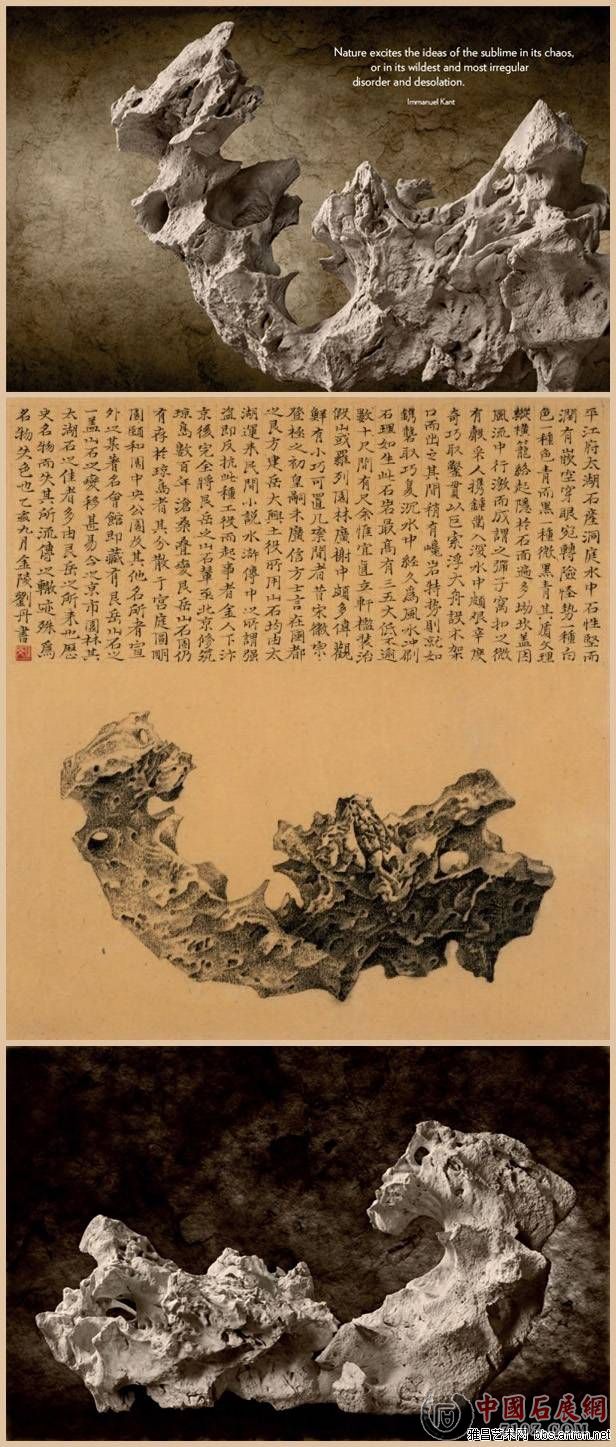 Nature excites the ideas of the sublime in its chaos,
or in its wildest and most irregular
disorder and desolation.
Immanuel Kant
平江府太湖石產洞庭水中石性堅而
潤有嵌空穿眼宛轉險怪勢一種白
色一種色青而黑一種微黑青其質文理
縱橫籠絡起隱於石面遍多坳坎蓋因
風流中行激而成謂之彈子窩扣之微
有聲采人攜錘鑿入深水中頗艱辛度
奇巧取鑿貫以巨索浮大舟設木架
口而出之其間稍有巉岩特勢則就如
鐫礱取巧复沉水中經久為風水沖刷
石理如生此石岩最高有三五丈低不逾
數十尺間有尺余惟宜植立軒檻裝治
假山或羅列園林廣榭中頗多偉觀
鮮有小巧可置几案間者昔宋徽宗
登極之初皇嗣未廣信方士言在國都
之艮方建岳大興土役所用山石均由太
湖運來民間小說水滸傳中之所謂強
盜即反抗此種工役而起事者金人下汴
京後完全將艮岳之山石輦至北京修築
瓊島數百年滄桑疊變艮岳山石固仍
有存於瓊島者其分散于宮庭圓明
園頤和園中央公園及其他名所者宣
外之某著名會館即藏有艮岳山石之
一蓋山石之變移甚易今之京市園林其
太湖石之佳者多由艮岳之所來也歷
史名物而失其所流傳之轍迹殊為
名物失色也乙亥九月金陵劉丹書
中國石展網
雅昌艺术网 bbs.artron.net